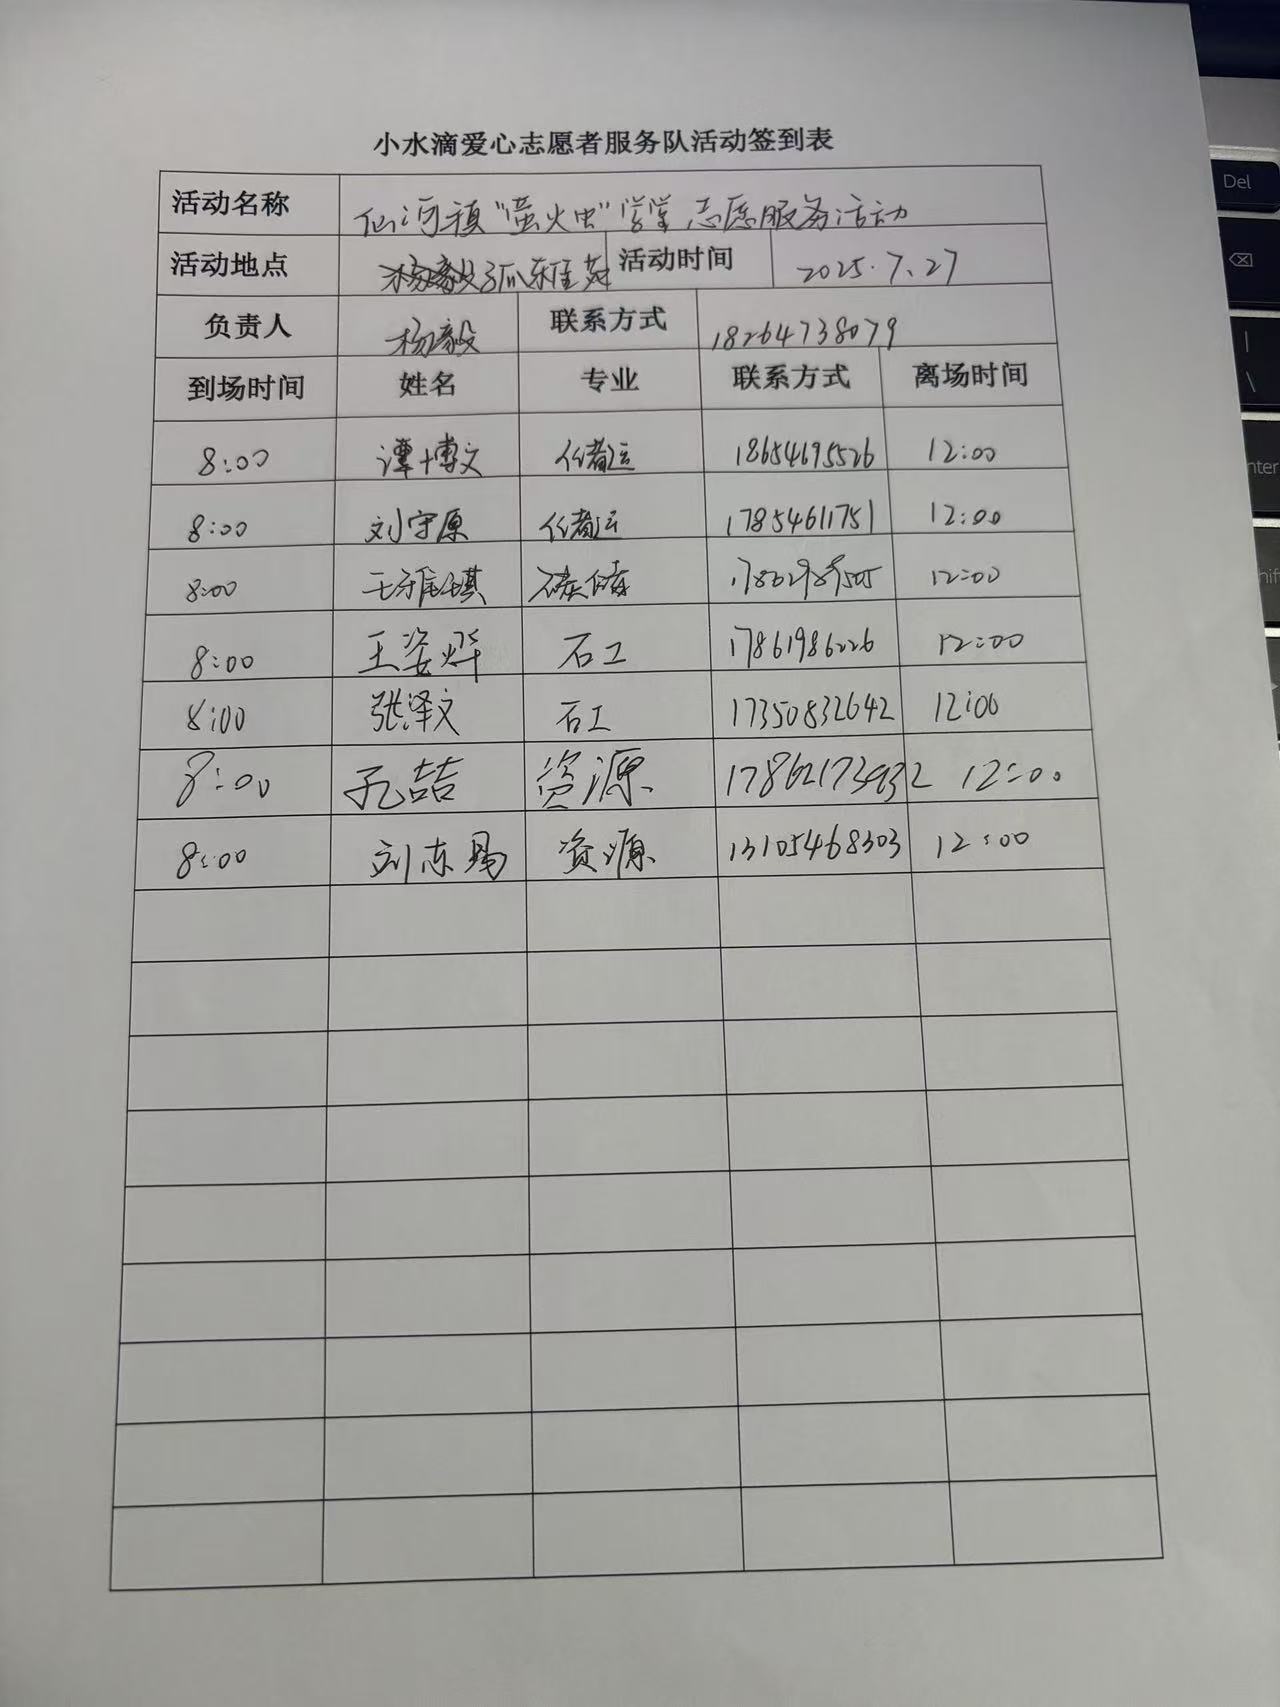 小水滴爱心志愿者服务队活动签到表
活动名称 仙河镇"萤火虫"学堂志愿服务活动
活动地点 孤东佳苑 活动时间 2025.7.27
负责人 杨毅 联系方式 18264738079
到场时间 姓名 专业 联系方式 离场时间
8:00 谭博文 储运 18654695526 12:00
8:00 刘守原 储运 17854611751 12:00
8:00 王雅琪 碳储 12:00
8:00 王姿烨 石工 17861986226 12:00
8:00 张泽文 石工 17350832642 12:00
8:00 孔喆 资源 17862173932 12:00
8:00 刘志 资源 13105468303 12:00
Del